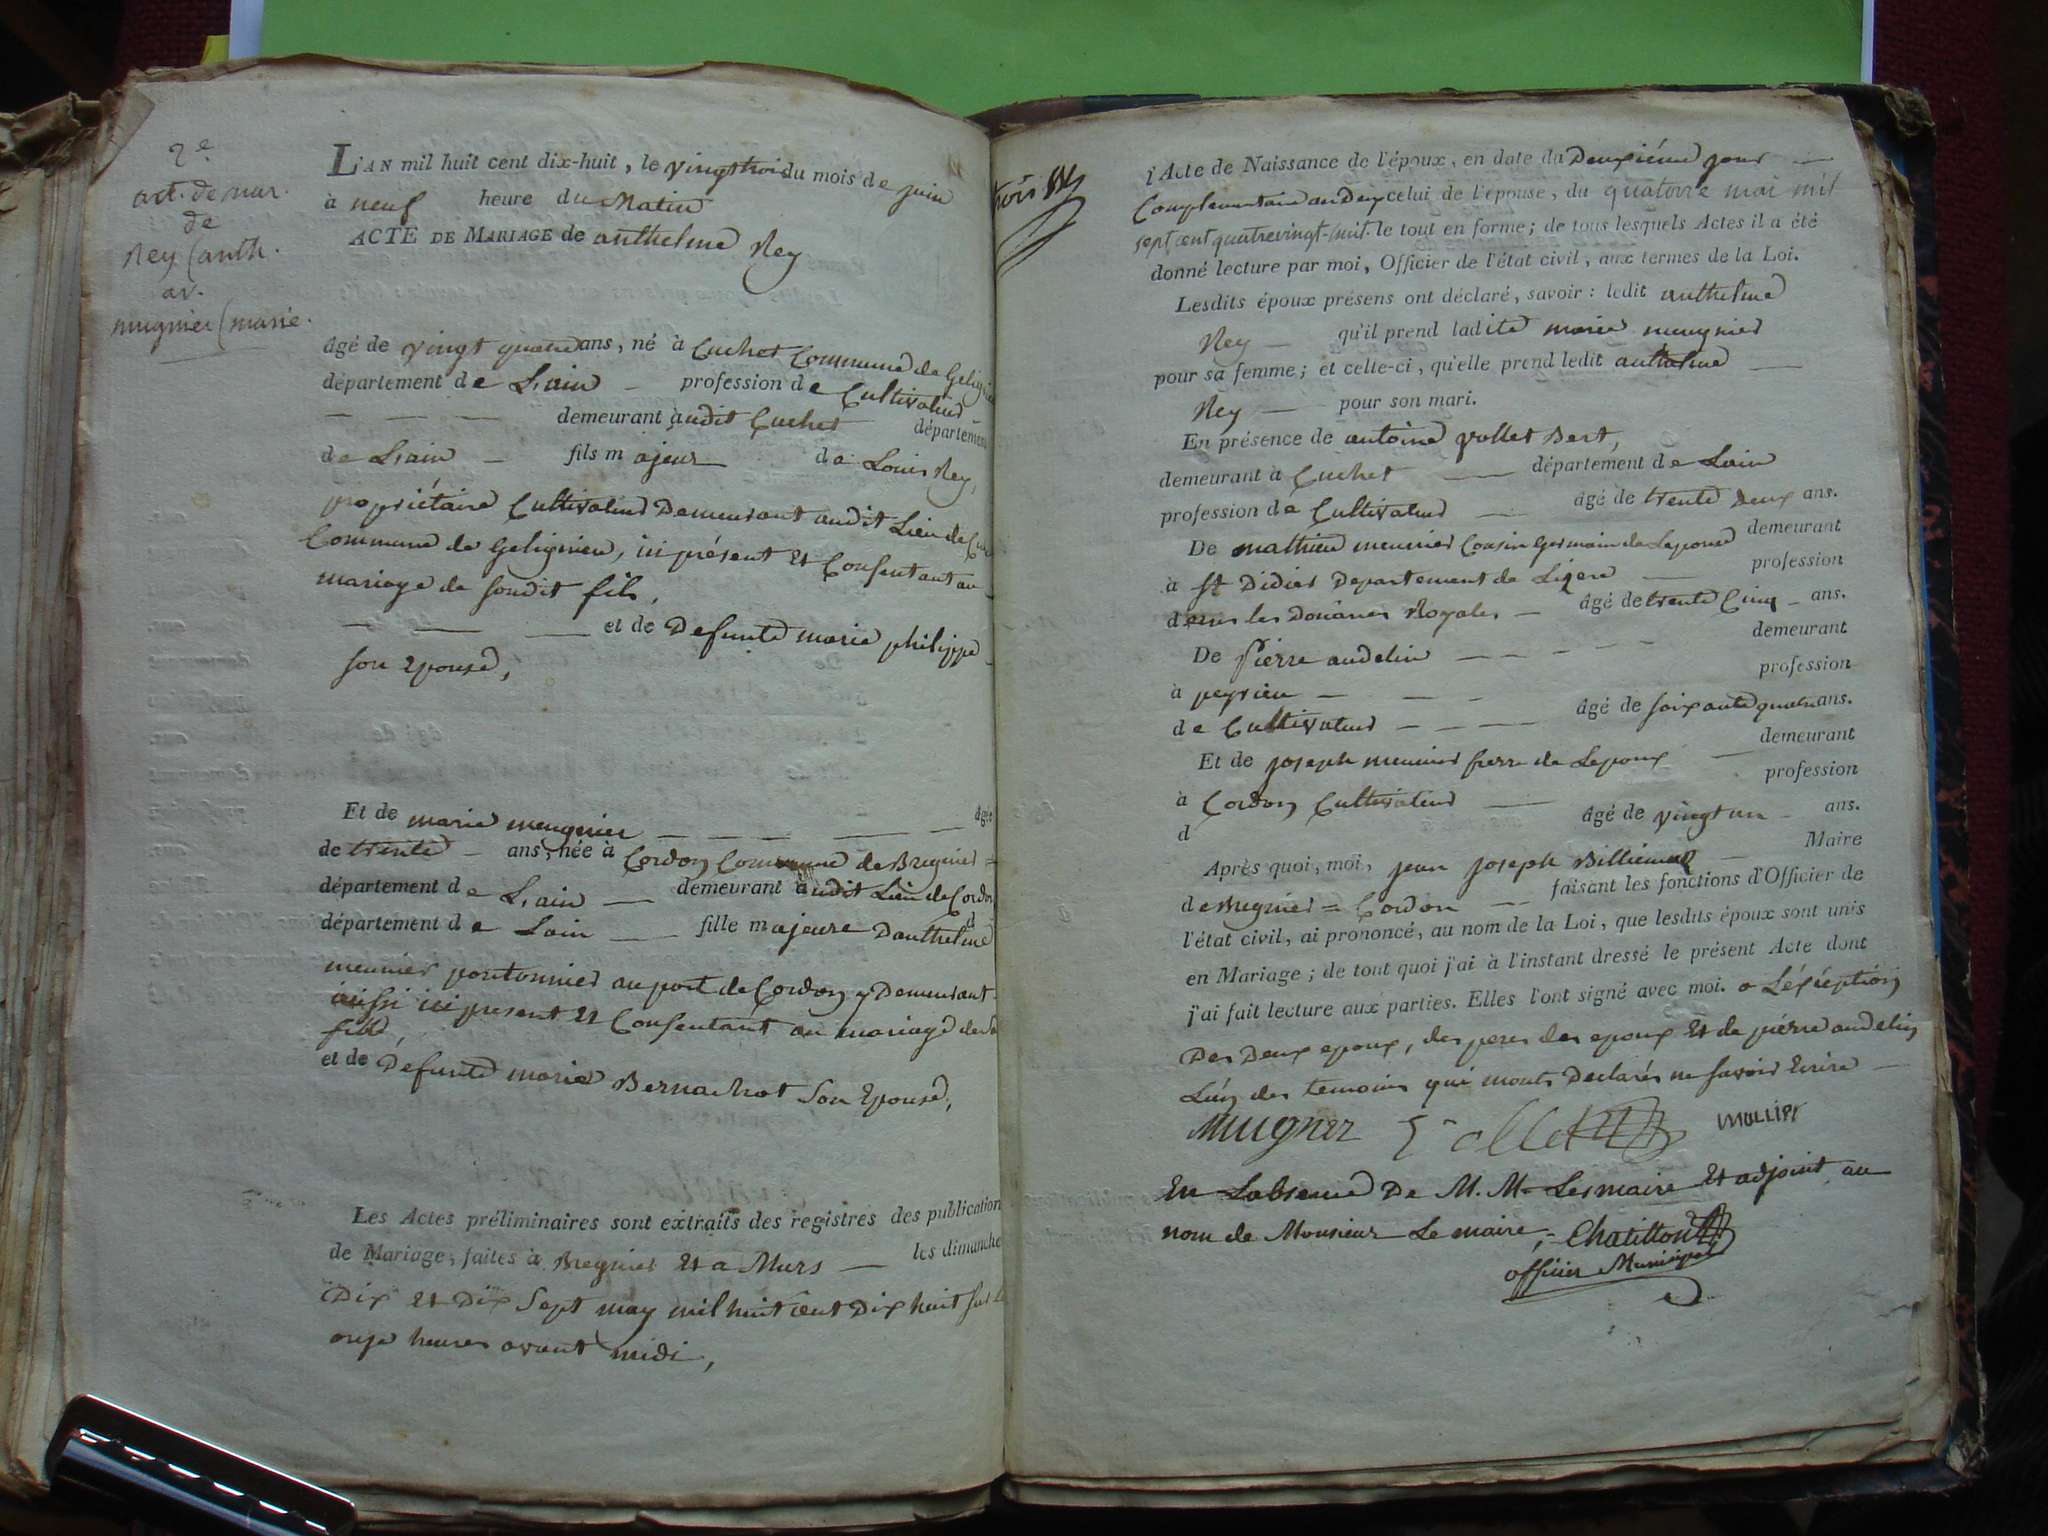 2e
act. de mar.
de
Rey (anth.
av.
mugnier (marie.
L'AN mil huit cent dix-huit, le vingt trois du mois de juin
à neuf heure du Matin
ACTE DE MARIAGE de anthelme Rey
âgé de vingt quatre ans, né à Cuchet Commune de Gelignieu
département de L'ain — profession de Cultivateur
— — — demeurant audit Cuchet département
de L'ain — fils majeur de Louis Rey,
propriétaire Cultivateur Demeurant audit Lieu de
Commune de Gelignieu, ici présent et Consentant au
mariage de sondit fils,
— — — et de Defunte marie philippe
son Epouse,
Et de marie meugnier — — — — âgée
de trente — ans, née à Cordon Commune de Bregnier =
département de L'ain — demeurant audit Lieu de Cordon
département de Lain — fille majeure d Danthelme
meunier pontonnier au port de Cordon y Demeurant
aussi ici present et Consentant au mariage de sa
fille,
et de Defunte marie Bernachot son Epouse,
Les Actes préliminaires sont extraits des registres des publication
de Mariage, faites à Bregnier et a Murs — les dimanche
Dix et Dix sept may mil huit cent Dix huit sur les
onze heures avant midi,
trois
l'Acte de Naissance de l'époux, en date du Deuxiéme jour —
Complementaire an Deux celui de l'épouse, du quatorze mai mil
sept cent quatrevingt-huit. le tout en forme; de tous lesquels Actes il a été
donné lecture par moi, Officier de l'état civil, aux termes de la Loi.
Lesdits époux présens ont déclaré, savoir: ledit anthelme
Rey — qu'il prend ladite marie meugnier
pour sa femme; et celle-ci, qu'elle prend ledit anthelme —
Rey — pour son mari.
En présence de antoine vollet Bert,
demeurant à Cuchet — département de Lain
profession de Cultivateur — âgé de trente Deux ans.
De mathieu meunier Cousin germain de Lepouse demeurant
à St Didier Departement de Lizere — profession
dans les Douanes Royales — âgé de trente Cinq — ans.
De Pierre audelin — — — — demeurant
à peyrieu — — — profession
de Cultivateur — — — âgé de soixante quatre ans.
Et de joseph meunier frere de Lepoux — demeurant
à Cordon Cultivateur — profession
d âgé de vingt un — ans.
Après quoi, moi, jean joseph Billiemaz — Maire
de Bregnier = Cordon — faisant les fonctions d'Officier de
l'état civil, ai prononcé, au nom de la Loi, que lesdits époux sont unis
en Mariage; de tout quoi j'ai à l'instant dressé le présent Acte dont
j'ai fait lecture aux parties. Elles l'ont signé avec moi. a Léxéption
Des Deux epoux, des peres des epoux et de pierre audelin
Lún des temoins qui monts Declarés ne savoir Ecrire —
Mugner Vollet MOLLIET
En Labsence De M. M. Les maire et adjoint, au
nom de Monsieur Le maire, = Chatillon
officier Municipal